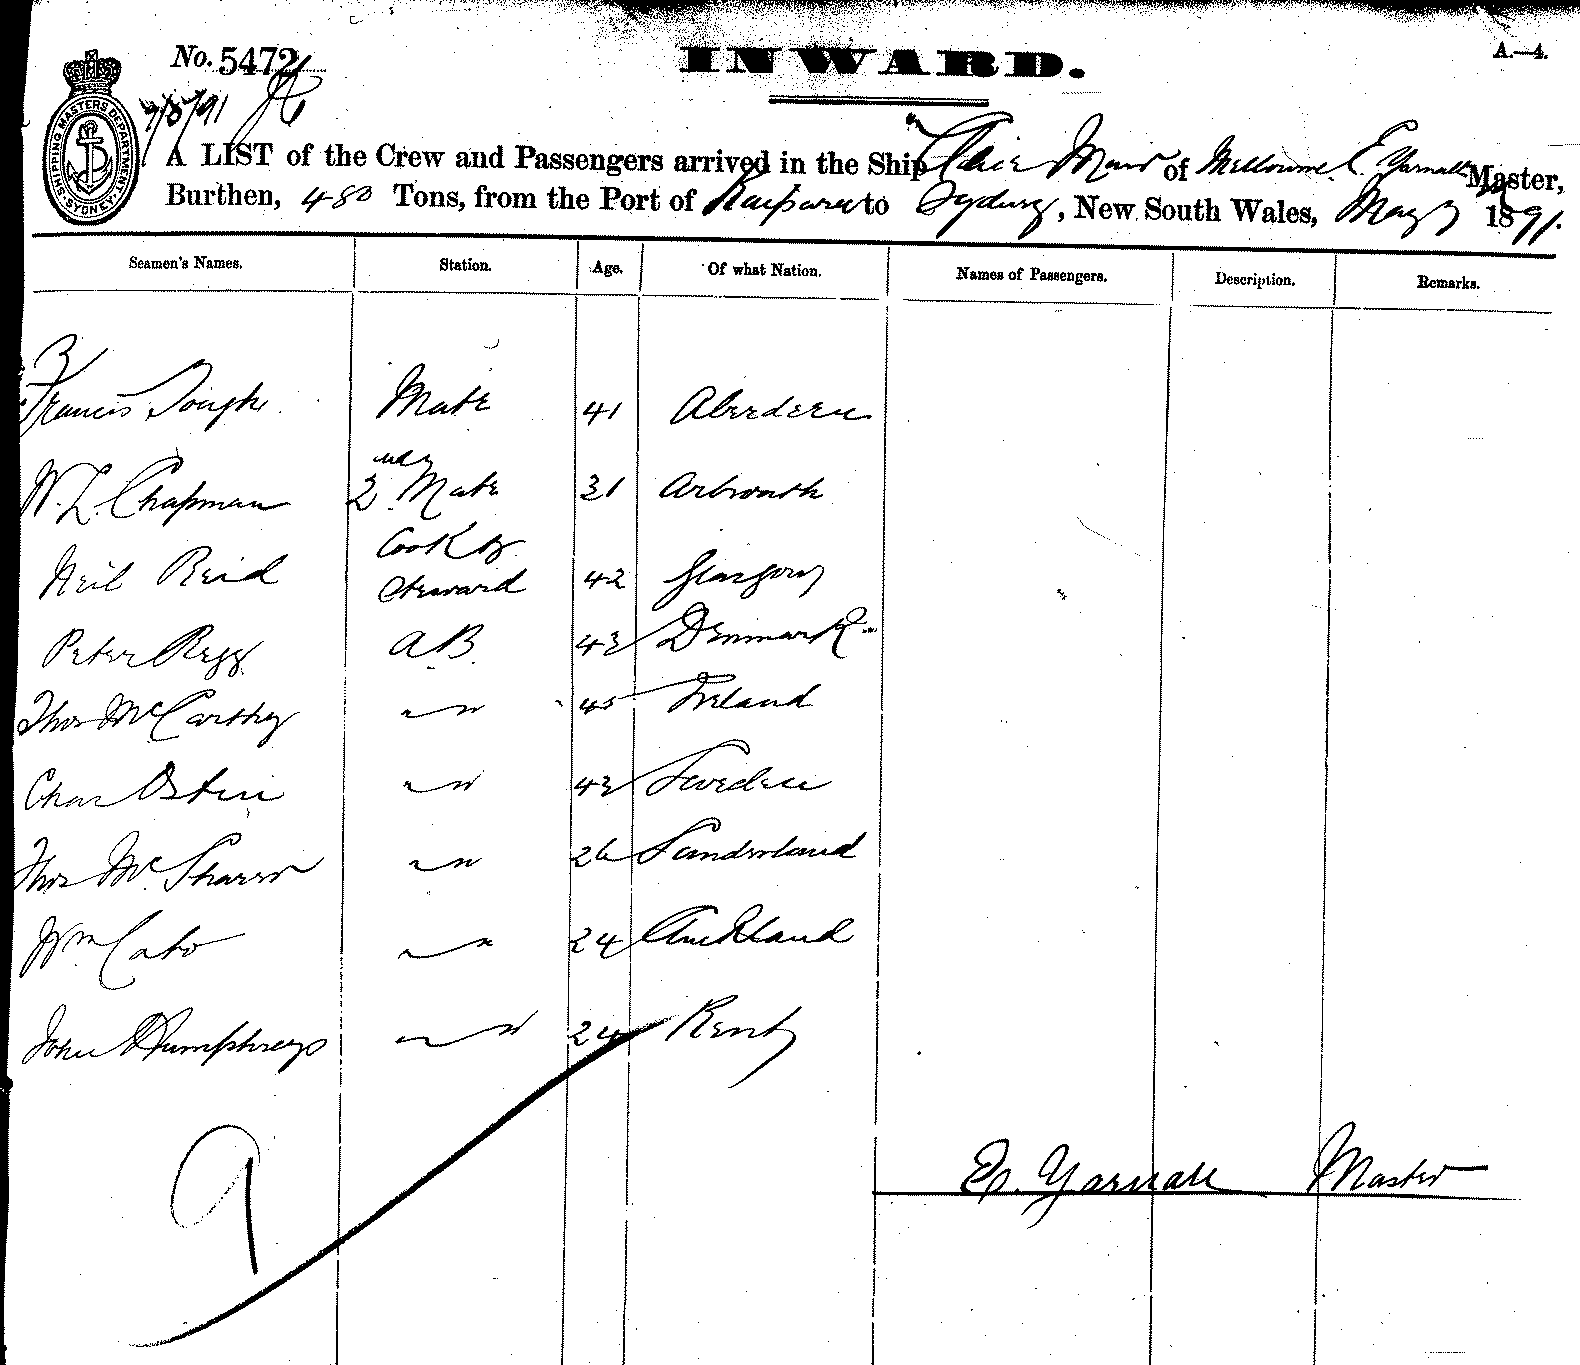 No. 5472
INWARD.
A.—4.
SHIPPING MASTERS DEPARTMENT SYDNEY
7/5/91
A LIST of the Crew and Passengers arrived in the Ship of Melbourne E. Yarnall Master,
Burthen, 480 Tons, from the Port of Kaipara to Sydney, New South Wales, May 7 1891.
Seamen's Names. Station. Age. Of what Nation. Names of Passengers. Description. Remarks.
Francis Mate 41 Aberdeen
W. L. Chapman 2nd Mate 31
Neil Reid Cook & Steward 42 Glasgow
Peter A.B. 43 Denmark
Thos McCarthy " 45 Ireland
Chas " 43 Sweden
Thos Mc " 26 Sunderland
Wm Cato " 24 Auckland
John Humphreys " 24 Kent
9
E. Yarnall Master